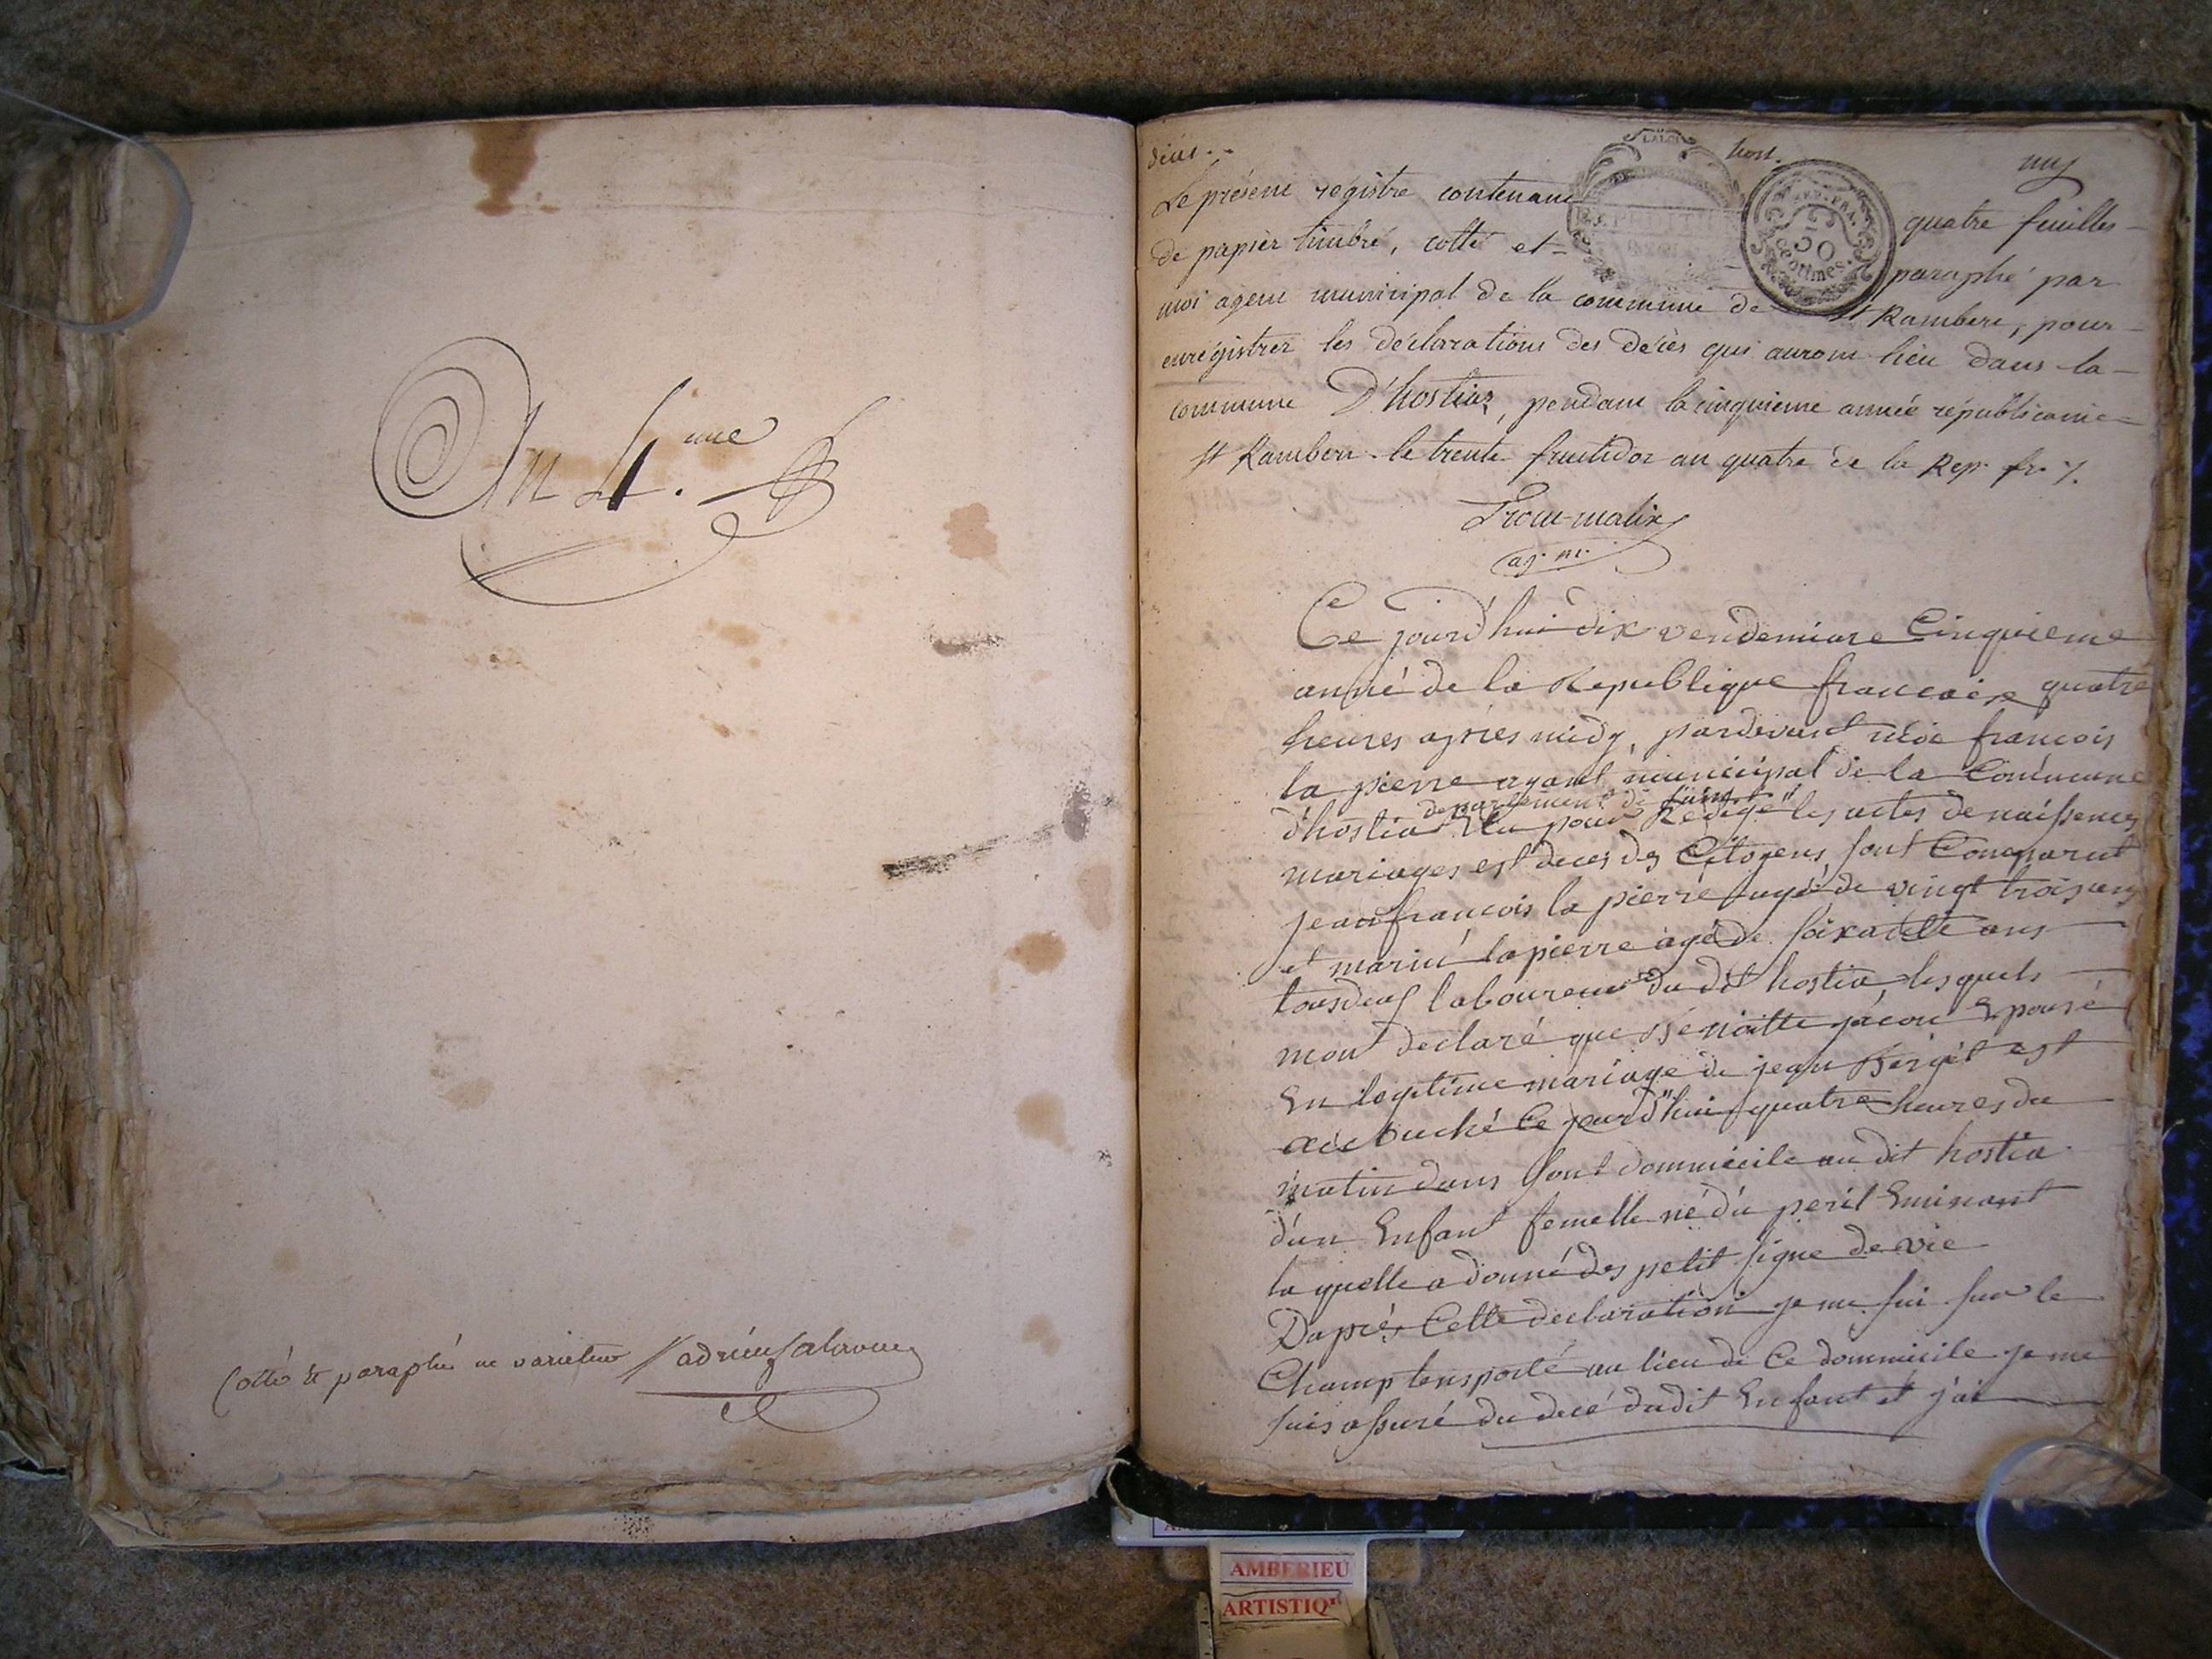 An 4.me
Cotté & paraphé ne varietur
décés..
host.
LA LOI
REP. FRA.
50
centimes.
Le présent régistre contenant quatre feuilles
de papier timbré, cotté et paraphé par
moi agent municipal de la commune de st Rambert, pour
enregistrer les déclarations des décès qui auront lieu dans la
commune D'hostiaz, pendant la cinquieme année républicaine
st Rambert le trente fructidor an quatre de la Rep. fr.
ag. m.
Ce jourd'hui dix vendemiare Cinquieme
anné de la Republique francaise quatre
heures apres midy, pardevant moi francois
la pierre agant municipal de la Commune
departement de
d'hostia Elu pour Redigé les actes de naissences
mariages est deces des Citoyens, sont Comparut
jean francois la pierre agé de vingt trois ans
et marin lapierre agé de soixante ans
tousdeux laboureur du dit hostia, lesquels
mont declaré que Benoitte jacou Epousé
En legetime mariage de jean Berget est
accouché Ce jourd'hui quatre heures du
matin dans sont dommicile au dit hostia
d'un Enfant femelle né du peril Eminant
la quelle a donné des petit signe de vie
Daprés Cette declaration je me sui sur le
Champ tensporté au lieu de Ce dommicile je me
suis assuré du decé dudit Enfant et j'ai
AMBERIEU
ARTISTIQ